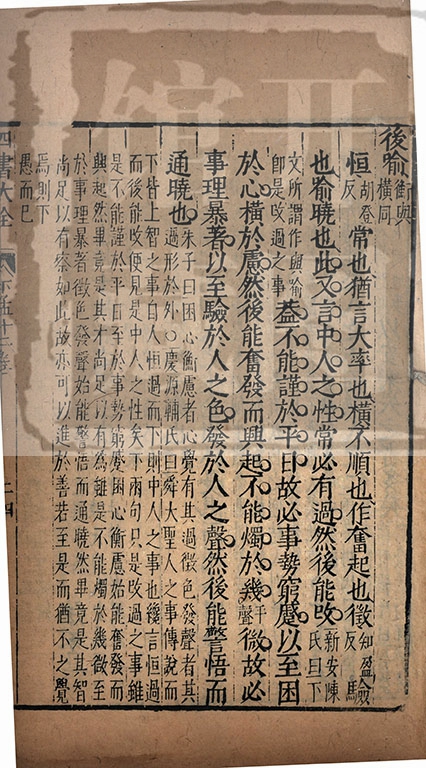 後喻衡與橫同
恒胡登反常也猶言大率也橫不順也作奮起也徵知盈反驗
也喻曉也此又言中人之性常必有過然後能改新安陳氏曰下
文所謂作與喻即是改過之事蓋不能謹於平日故必事勢窮蹙以至困
於心橫於慮然後能奮發而興起不能燭於幾平聲微故必
事理暴著以至驗於人之色發於人之聲然後能警悟而
通曉也朱子曰困心衡慮者心覺有其過徵色發聲者其過形於外○慶源輔氏曰舜大聖人之事傳說而
下皆上智之事自人恒過而下則中人之事也纔言恒過
而後能改便見是中人之性矣下兩句只是改過之事雖
是不能謹於平日至於事勢窮蹙困心衡慮始能奮發而
興起然畢竟是其才尚足以有為雖是不能燭於幾微至
於事理暴著徵色發聲始能警悟而通曉然畢竟是其智
尚足以有察如此故亦可以進於善若至是而猶不之覺
焉則下愚而已
四書大全
二四